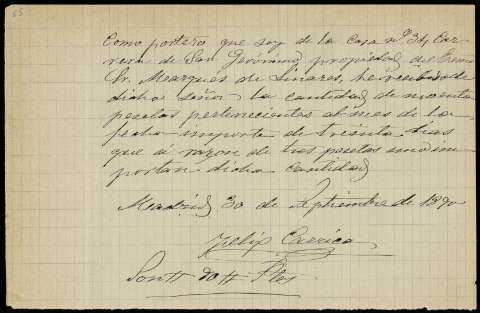 65
Como portero que soy de la casa nº 34, Car-
rera de San Gerónimo, propiedad del Excmo
Sr. Marqués de Linares, he recibido de
dicho señor la cantidad de noventa
pesetas pertenecientes al mes de la
fecha importe de treinta dias
que á razon de tres pesetas uno im-
portan dicha cantidad
Madrid, 30 de Septiembre de 1890
Felix
Son 90 Ptas.